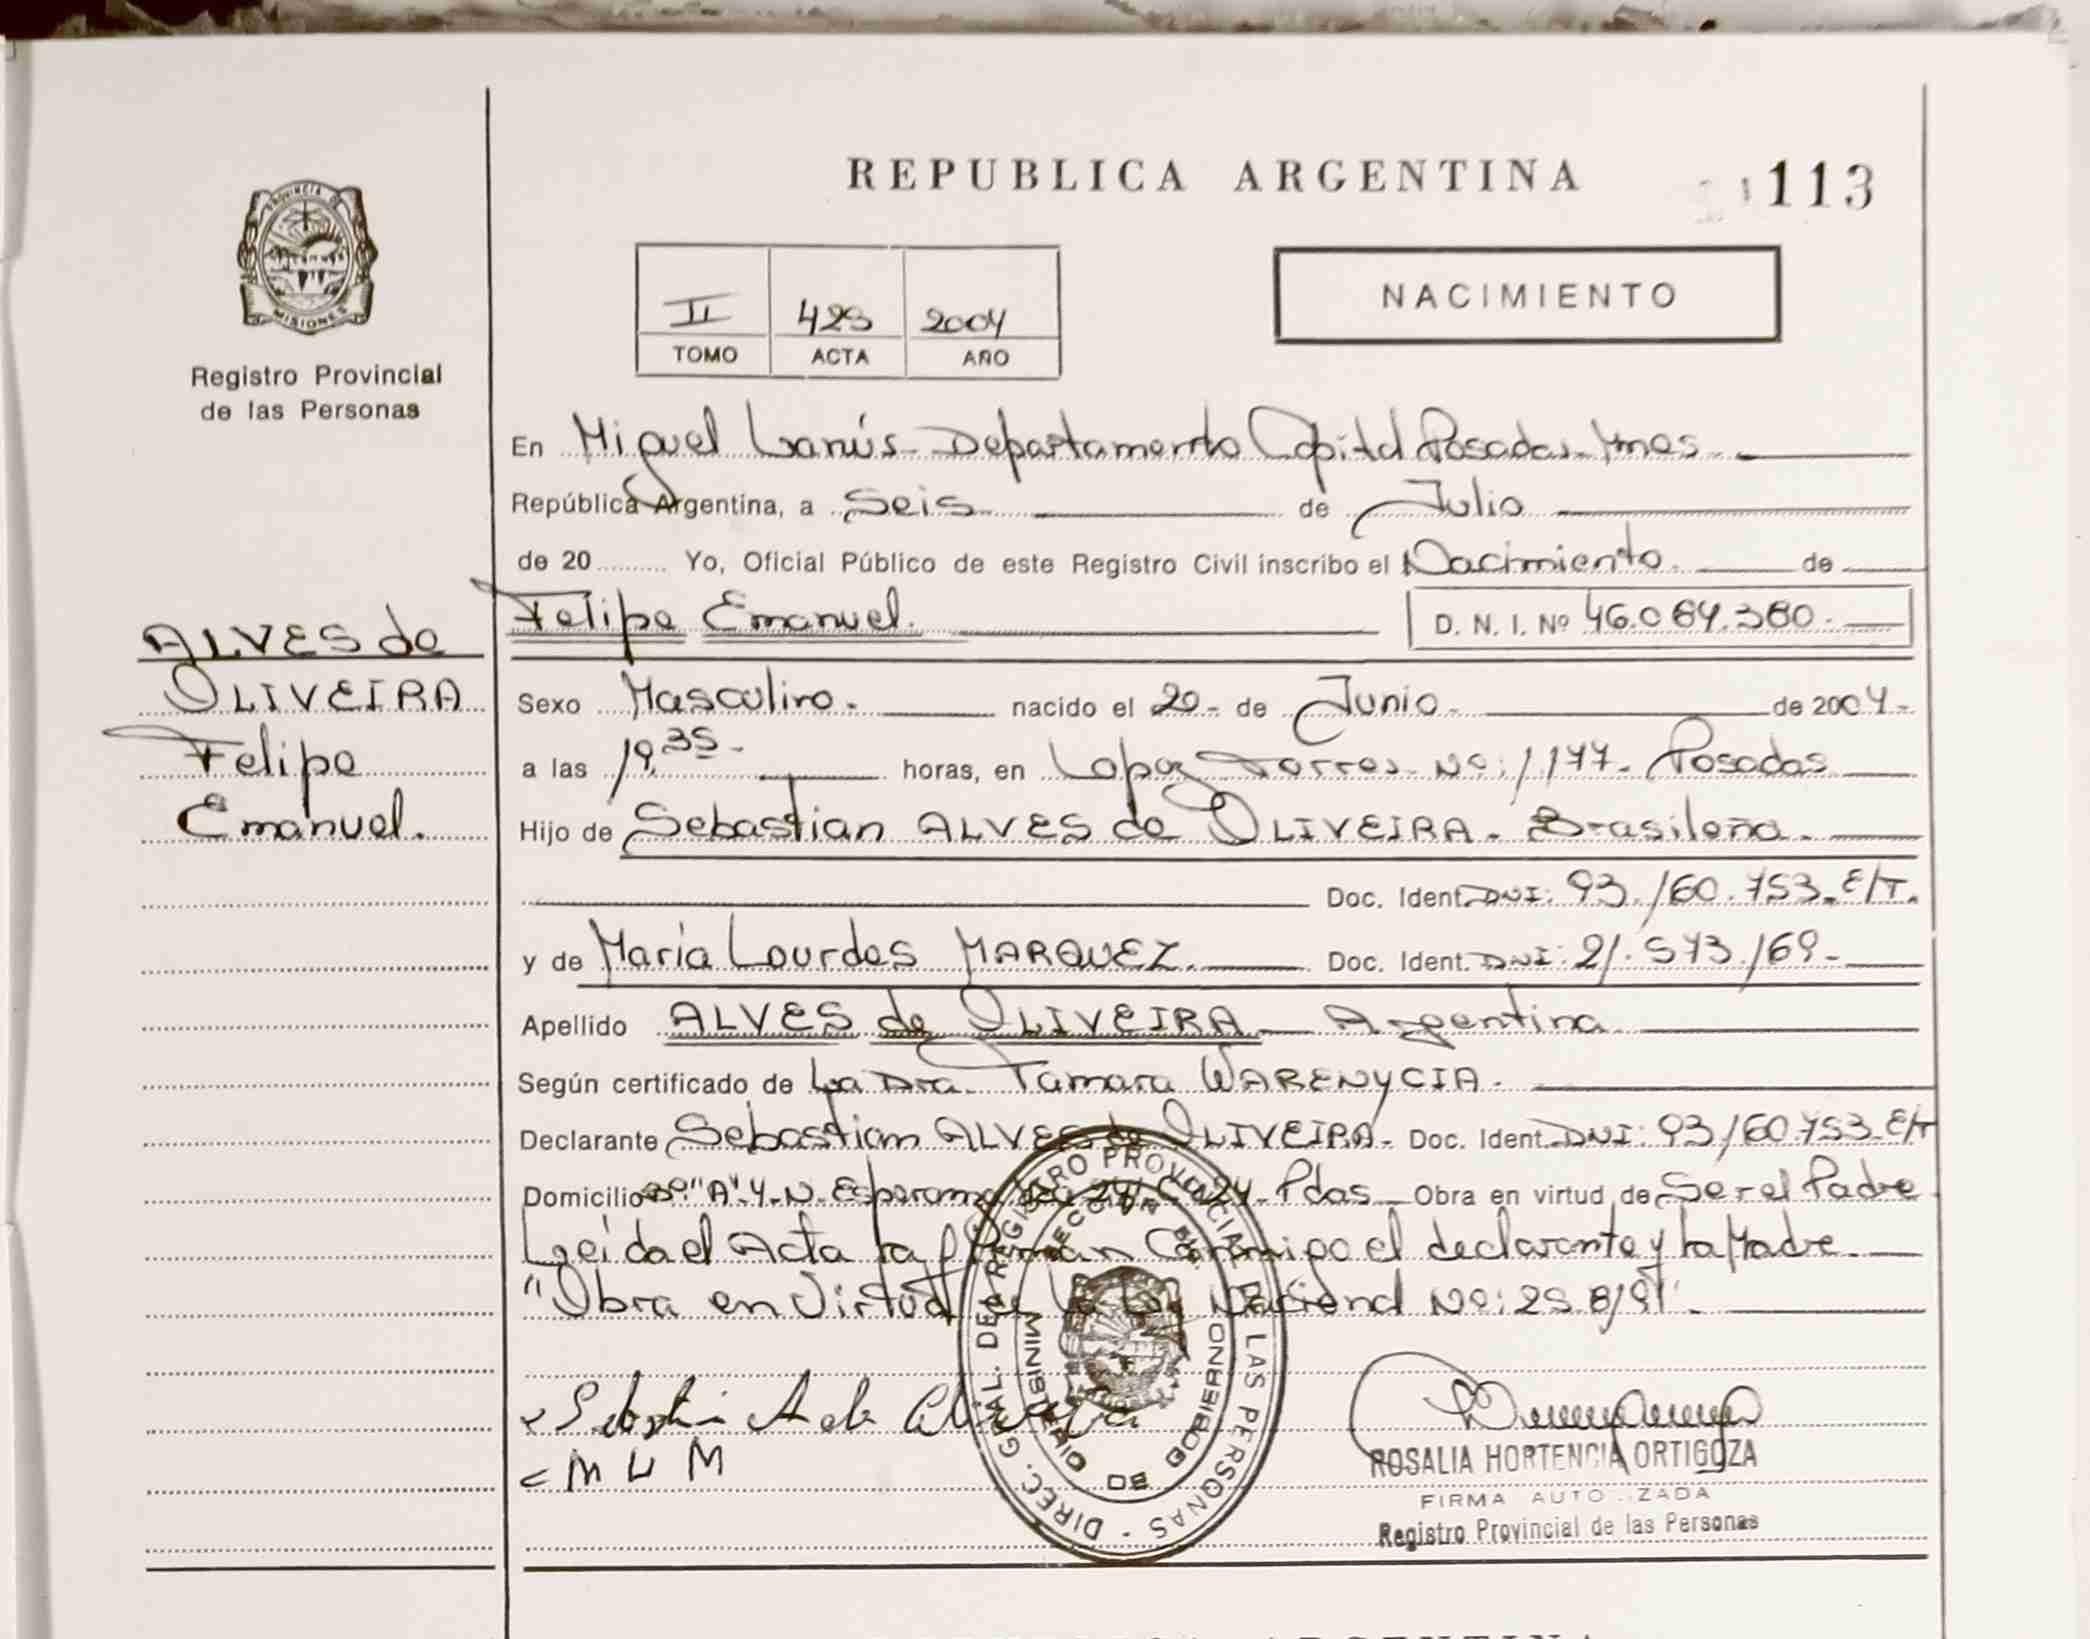 REPUBLICA ARGENTINA
113
PROVINCIA DE
MISIONES
Registro Provincial
de las Personas
II 423 2004
TOMO ACTA AÑO
NACIMIENTO
En Miguel Lanús - Departamento Capital Posadas - Mnes -
República Argentina, a Seis de Julio
de 20 ......... Yo, Oficial Público de este Registro Civil inscribo el Nacimiento. de
Felipe Emanuel.
D. N. I. Nº 46.084.380.
ALVES de
OLIVEIRA
Felipe
Emanuel.
Sexo Masculino. nacido el 20 - de Junio - de 2004 -
a las 19,35 - horas, en Lopez Torres - Nº: 1177 - Posadas
Hijo de Sebastian ALVES de OLIVEIRA - Brasileña.
Doc. Ident. DNI: 93.160.753. E/T.
y de Maria Lourdes MARQUEZ. Doc. Ident. DNI: 21.573.169 -
Apellido ALVES de OLIVEIRA - Argentina
Según certificado de La Dra. Tamara WARENYCIA.
Declarante Sebastian ALVES de OLIVEIRA - Doc. Ident. DNI: 93.160.753. E/T
Domicilio Bº "A" 4 - N. Esperanza 24 - Pdas - Obra en virtud de Ser el Padre
Leída el Acta la firman Conmigo el declarante y la Madre.
"Obra en Virtud de la Ley Nacional Nº:
Sebastián A de Oliveira
M L M
DIREC. GRAL. DEL REGISTRO PROVINCIAL DE LAS PERSONAS -
MINISTERIO DE GOBIERNO
ROSALIA HORTENCIA ORTIGOZA
FIRMA AUTO..ZADA
Registro Provincial de las Personas